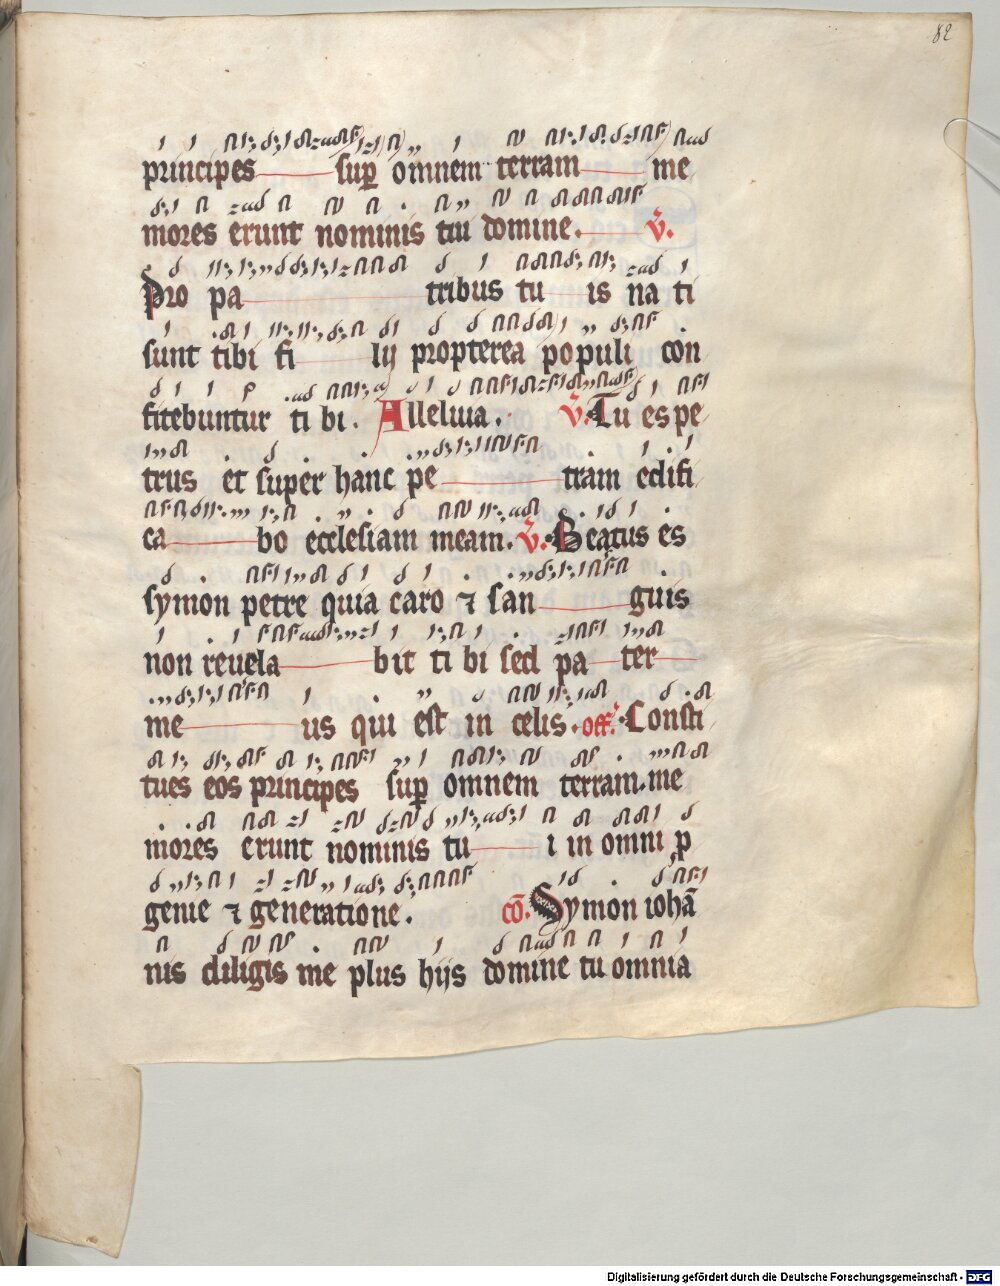 82
principes sup̱ omnem terram me
mores erunt nominis tui domine. v̄.
Pro pa tribus tu is na ti
sunt tibi fi lij propterea populi con
fitebuntur ti bi. Alleluia. v̄. Tu es pe
trus et super hanc pe tram edifi
ca bo ecclesiam meam. v̄. Beatus es
symon petre quia caro ⁊ san guis
non reuela bit ti bi sed pa ter
me us qui est in celis. off. Consti
tues eos principes sup̱ omnem terram. me
mores erunt nominis tu i in omni p̱
genie ⁊ generatione. cō. Symon iohā
nis diligis me plus hijs domine tu omnia
Digitalisierung gefördert durch die Deutsche Forschungsgemeinschaft - DFG